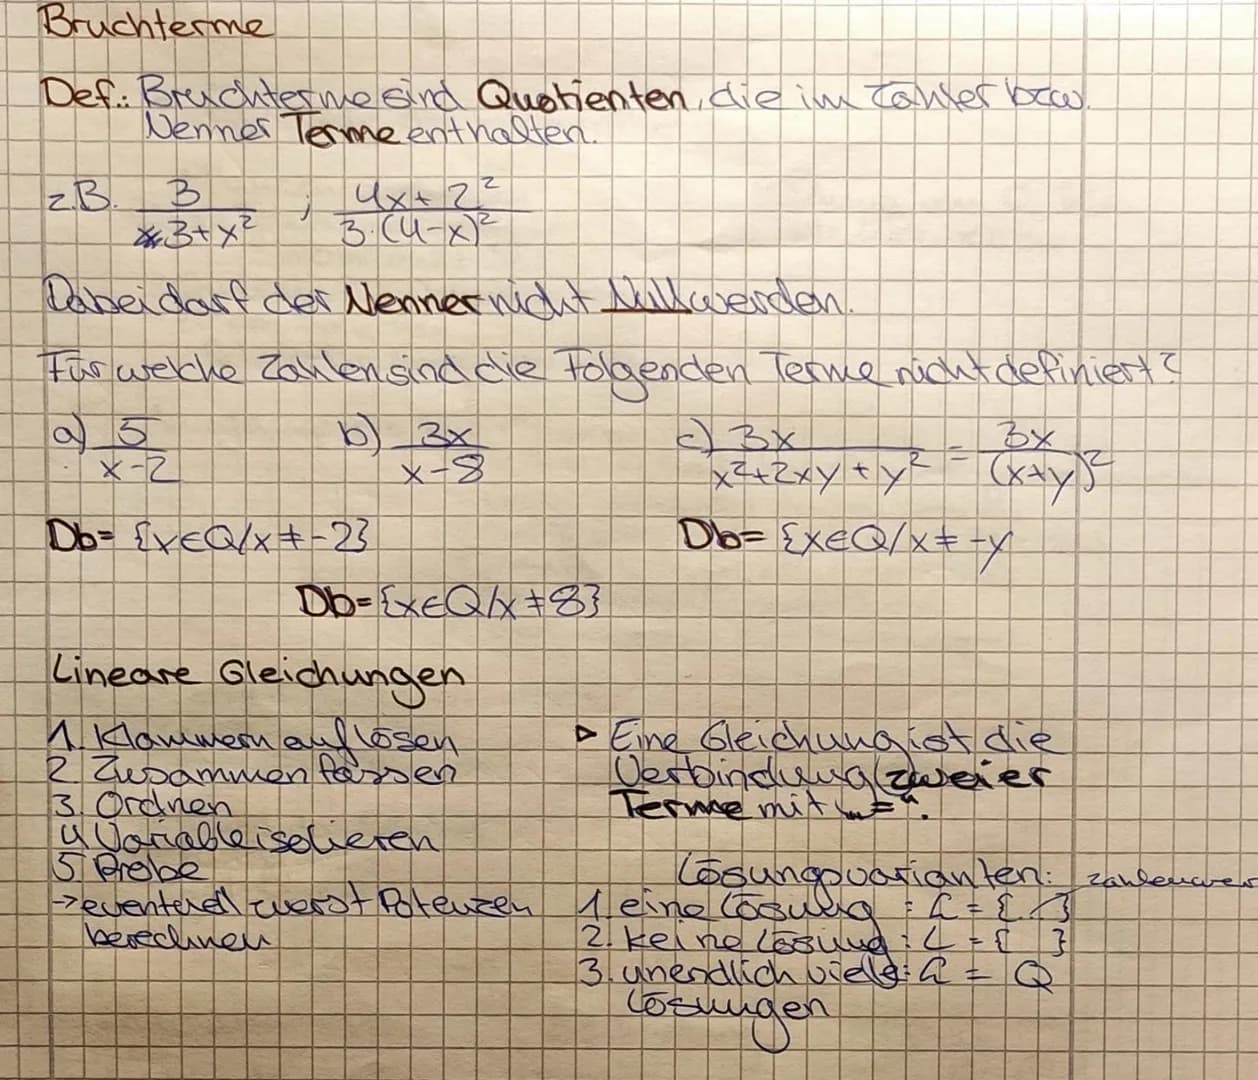 Bruchterme
Def.: Bruchterme sind Quotienten, die im Zähler bzw.
Nenner Terme enthalten.
z.B. 3/(3+x²) ; (4x+2²)/(3·(4-x)²)
Dabei darf der Nenner nicht Null werden.
Für welche Zahlen sind die Folgenden Terme nicht definiert?
a) 5/(x-2) b) 3x/(x-8) c) 3x/(x²+2xy+y²) = 3x/(x+y)²
Db= {x∈Q/x≠-2} Db= {x∈Q/x≠-y
Db={x∈Q/x≠8}
Lineare Gleichungen
1. Klammern auflösen
2. Zusammenfassen
3. Ordnen
4 Variable isolieren
5 Probe
→ eventuell zuerst Potenzen
berechnen
▷ Eine Gleichung ist die
Verbindung zweier
Terme mit „=“.
Lösungsvarianten: Zahlenwer
1. eine Lösung : L = { }
2. keine Lösung : L = { }
3. unendlich viele : L = Q
Lösungen